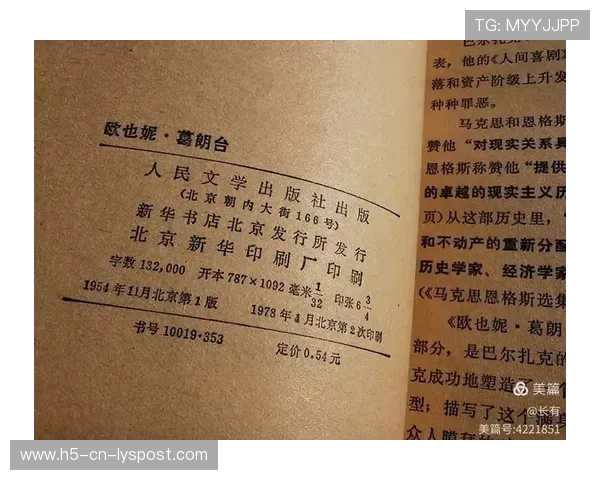 TG: MYYJJPP
欧也妮·葛朗台
人民文学出版社出版
(北京朝内大街166号)
新华书店北京发行所发行
北京新华印刷厂印刷
字数 132,000 开本 787×1092 毫米 1/32 印张 6 3/4
1954年11月北京第1版 1978年4月北京第2次印刷
书号 10019·353 定价 0.54 元
巴尔扎克
表,他的《人间喜剧》
落和资产阶级上升发
种种罪恶。
马克思和恩格斯
赞他“对现实关系具
恩格斯称赞他“提供
的卓越的现实主义历
页)从这部历史里,“
和不动产的重新分配
历史学家、经济学家
(《马克思恩格斯选集
《欧也妮·葛朗
部分,是巴尔扎克的
克成功地塑造了
型;描写了这个
众人
美篇
@长有
美篇号:4221851
www.h5-cn-lyspost.com